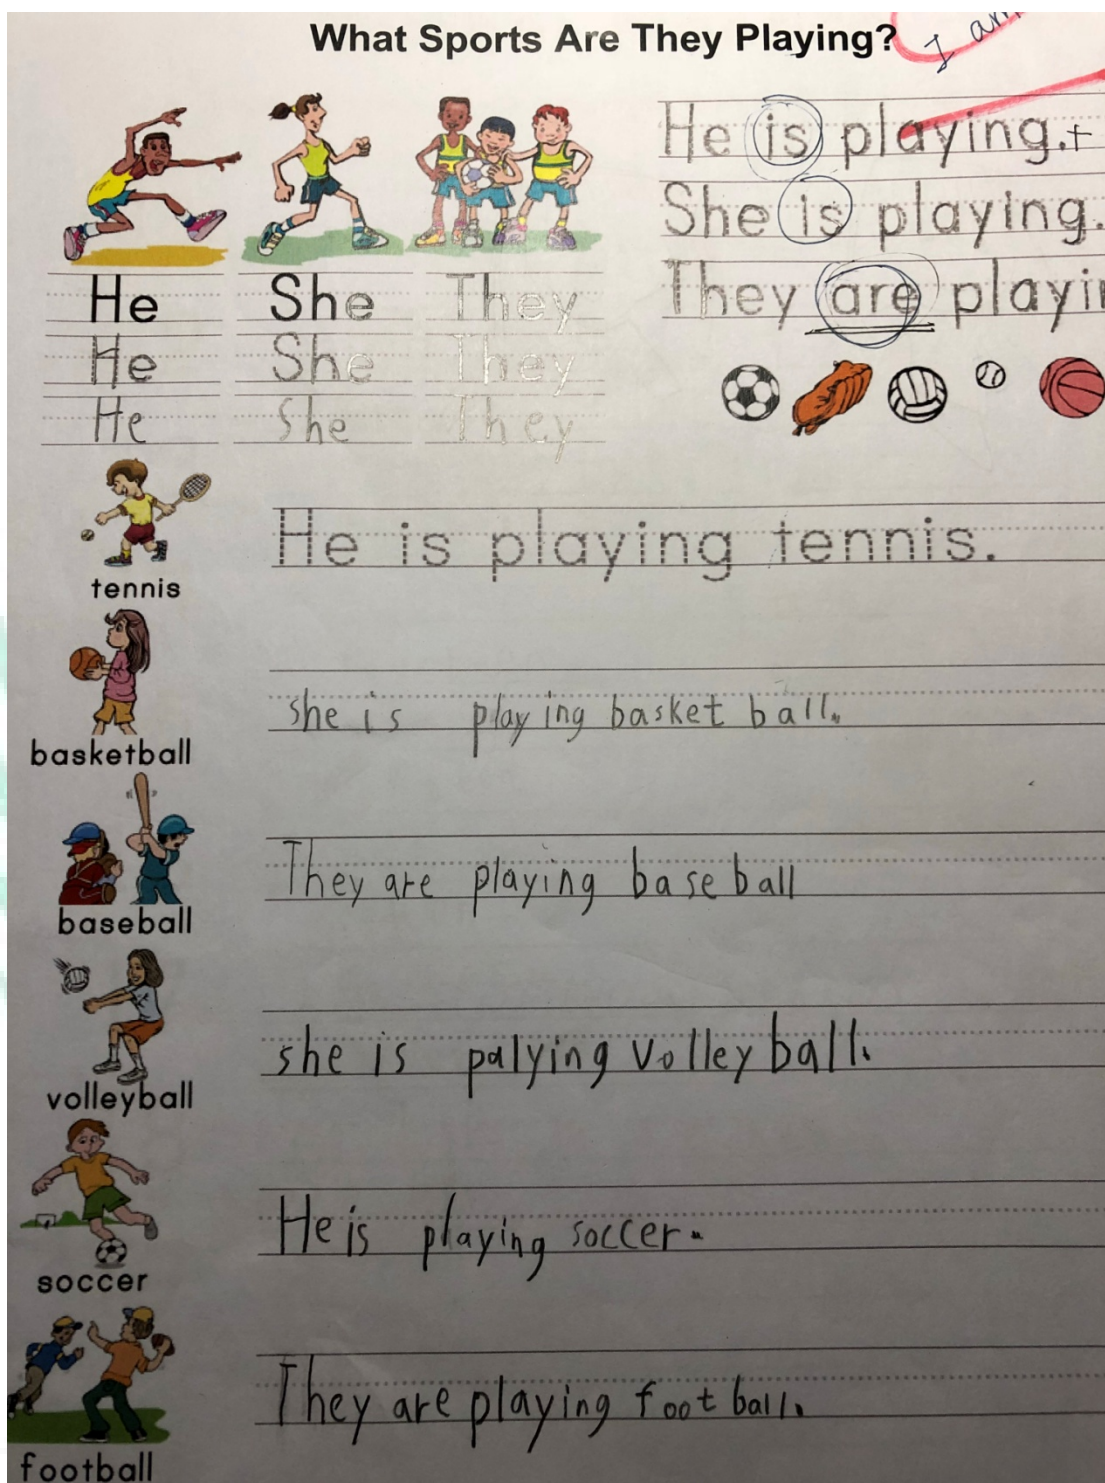 What Sports Are They Playing?
I am
He is playing.+
She is playing.
They are playi
He She They
He She They
He She They
tennis
He is playing tennis.
basketball
she is playing basket ball.
baseball
They are playing base ball
volleyball
she is palying volley ball.
soccer
He is playing soccer.
football
They are playing foot ball.